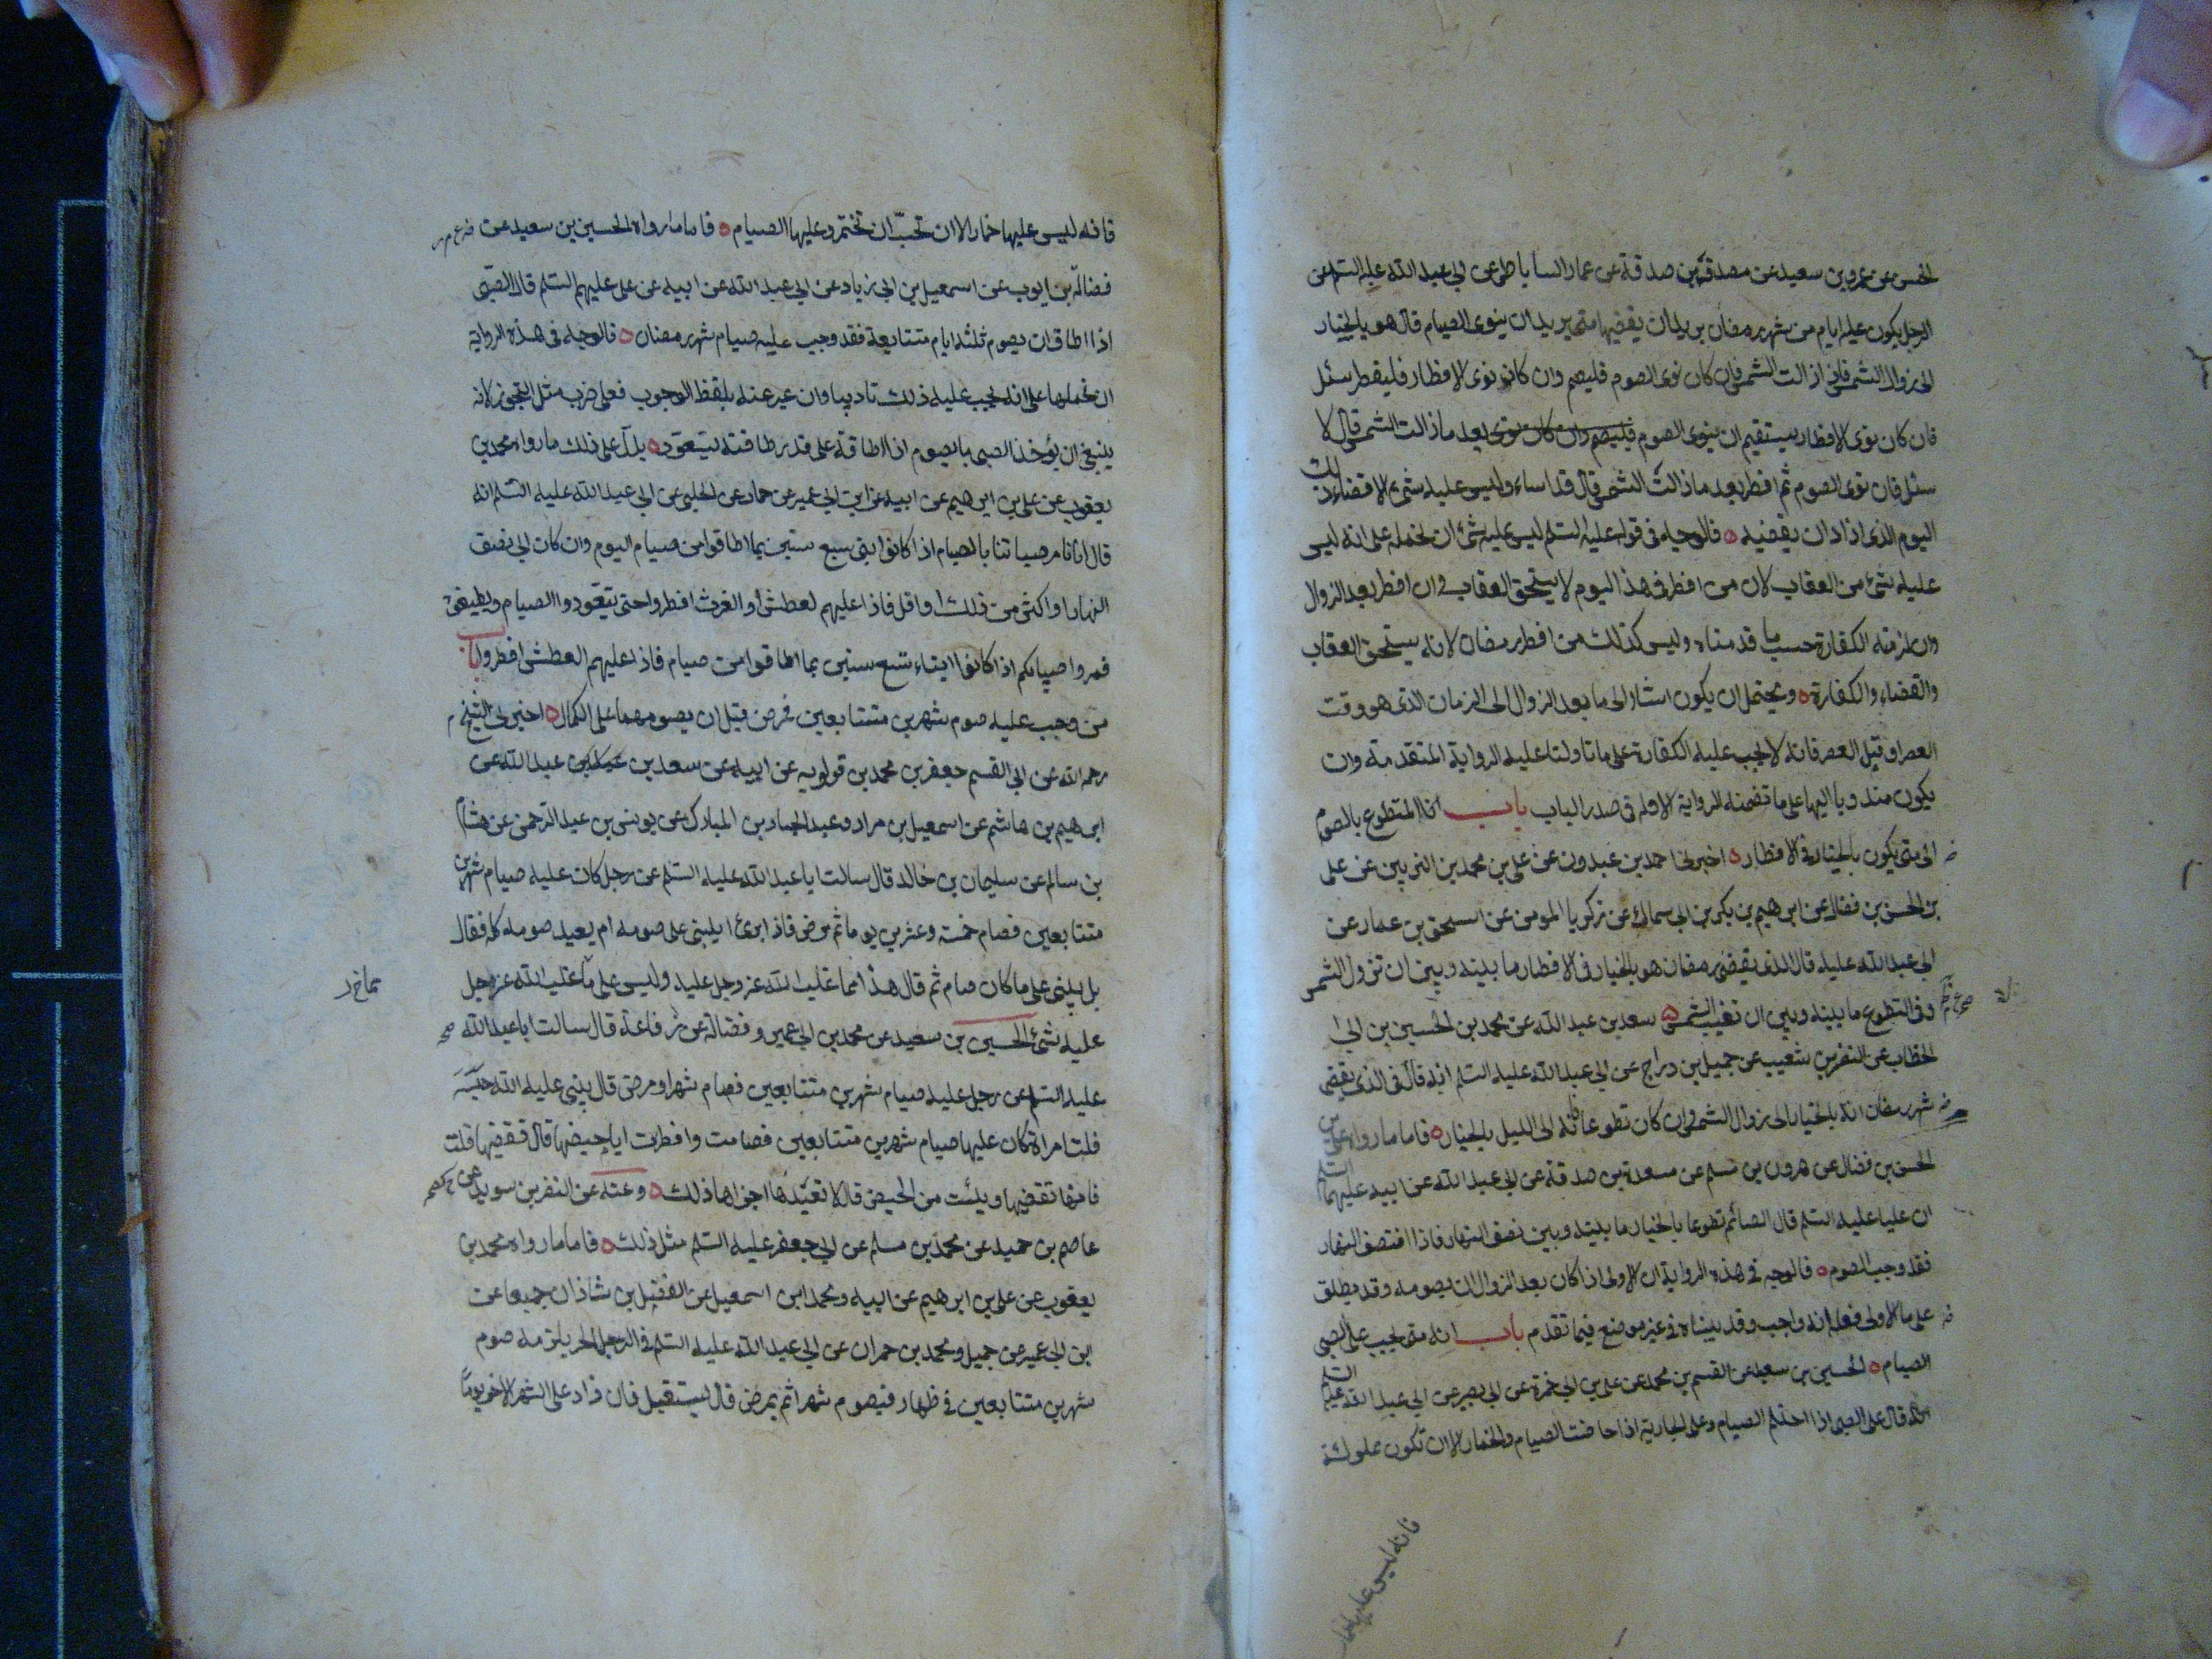 الحسن عن عمرو بن سعيد عن مصدق بن صدقة عن عمار الساباطي عن ابي عبد الله عليه السلم عن
الرجل يكون عليه ايام من شهر رمضان يريد ان يقضيها متى يريد ان ينوي الصيام قال هو بالخيار
الى زوال الشمس فاذا زالت الشمس فان كان نوى الصوم فليصم وان كان نوى الافطار فليفطر سئل
فان كان نوى الافطار يستقيم ان ينوى الصوم بعد ما زالت الشمس قال لا
سئل فان نوى الصوم ثم افطر بعد ما زالت الشمس قال قد اساء وليس عليه شئ الا قضاء ذلك
اليوم الذى اراد ان يقضيه فالوجه فى قوله عليه السلم ليس عليه شئ ان نحمله على انه ليس
عليه شئ من العقاب لان من افطر فى هذا اليوم لا يستحق العقاب وان افطر بعد الزوال
وان لزمته الكفارة حسب ما قدمناه وليس كذلك من افطر رمضان لانه يستحق العقاب
والقضاء والكفارة ويحتمل ان يكون اشار الى ما بعد الزوال الى الزمان الذى هو وقت
العصر او قبل العصر فانه لا يجب عليه الكفارة على ما تاولنا عليه الرواية المتقدمة وان
يكون مندوبا اليها على ما تضمنه الرواية الاوله فى صدر الباب باب ان المتطوع بالصوم
الى متى يكون بالخيار فى الافطار اخبرنى احمد بن عبدون عن على بن محمد بن الزبير عن على
بن الحسن بن فضال عن ابرهيم بن بكر بن ابى سماك عن زكريا المومن عن اسحق بن عمار عن
ابى عبد الله عليه قال الذى يقضى رمضان هو بالخيار فى الافطار ما بينه وبين ان تزول الشمس
وفى التطوع ما بينه وبين ان تغيب الشمس سعد بن عبد الله عن محمد بن الحسين بن ابى
الخطاب عن النضر بن شعيب عن جميل بن دراج عن ابى عبد الله عليه السلم انه قال فى الذى يقضى
شهر رمضان انه بالخيار الى زوال الشمس وان كان تطوعا فانه الى الليل بالخيار فاما ما رواه على بن
الحسن بن فضال عن هرون بن مسلم عن مسعدة بن صدقة عن ابى عبد الله عن ابيه عليهما السلم
ان عليا عليه السلم قال الصائم تطوعا بالخيار ما بينه وبين نصف النهار فاذا انتصف النهار
فقد وجب الصوم فالوجه فى هذه الرواية ان الاولى اذا كان بعد الزوال ان يصومه وقد يطلق
على ما الاولى فعله انه واجب وقد بيناه فى غير موضع فيما تقدم باب انه متى يجب على الصبى
الصيام الحسين بن سعيد عن القسم بن محمد عن على بن ابى حمزة عن ابى بصير عن ابى عبد الله عليه السلم
انه قال على الصبى اذا احتلم الصيام وعلى الجارية اذا حاضت الصيام والخمار الا ان تكون مملوكة
فانه ليس عليها خمار
فانه ليس عليها خمار الا ان تحبّ ان تختمر وعليها الصيام فاما ما رواه الحسين بن سعيد عن
فضالة بن ايوب عن اسمعيل بن ابى زياد عن ابى عبد الله عن ابيه عن على عليهم السلم قال الصبى
اذا اطاق ان يصوم ثلثه ايام متتابعة فقد وجب عليه صيام شهر رمضان فالوجه فى هذه الرواية
ان نحملها على انه يجب عليه ذلك تاديبا وان عبر عنه بلفظ الوجوب فعلى ضرب مثل التجوز لانه
ينبغى ان يؤخذ الصبى بالصوم اذا اطاقه على قدر طاقته ليتعوّد يدل على ذلك ما رواه محمد بن
يعقوب عن على بن ابرهيم عن ابيه عن ابن ابى عمير عن حماد عن الحلبى عن ابى عبد الله عليه السلم انه
قال انا نامر صبياننا بالصيام اذا كانوا بنى سبع سنين بما اطاقوا من صيام اليوم وان كان الى نصف
النهار او اكثر من ذلك او اقل فاذا غلبهم العطش او الغرث افطروا حتى يتعودوا الصيام ويطيقوه
فمروا صبيانكم اذا كانوا ابناء تسع سنين بما اطاقوا من صيام فاذا غلبهم العطش افطروا باب
من وجب عليه صوم شهرين متتابعين فمرض قبل ان يصومهما على الكمال اخبرنى الشيخ
رحمه الله عن ابى القسم جعفر بن محمد بن قولويه عن ابيه عن سعد بن عبد الله عن
ابرهيم بن هاشم عن اسمعيل بن مرار وعبد الجبار بن المبارك عن يونس بن عبد الرحمن عن هشام
بن سالم عن سليمان بن خالد قال سالت ابا عبد الله عليه السلم عن رجل كان عليه صيام شهرين
متتابعين فصام خمسة وعشرين يوما ثم مرض فاذا برئ ايبنى على صومه ام يعيد صومه كله فقال
بل يبنى على ما كان صام ثم قال هذا مما غلب الله عز وجل عليه وليس على ما غلب الله عز وجل
مما خ ر
عليه شئ الحسين بن سعيد عن محمد بن ابى عمير وفضالة عن رفاعة قال سالت ابا عبد الله
عليه السلم عن رجل عليه صيام شهرين متتابعين فصام شهرا ومرض قال يبنى عليه الله حبسه
قلت امراة كان عليها صيام شهرين متتابعين فصامت وافطرت ايام حيضها قال تقضيها قلت
فانها تقضيها ويئست من الحيض قال لا تعيدها اجزاها ذلك وعنه عن النضر بن سويد عن
عاصم بن حميد عن محمد بن مسلم عن ابى جعفر عليه السلم مثل ذلك فاما ما رواه محمد بن
يعقوب عن على بن ابرهيم عن ابيه ومحمد ابن اسمعيل عن الفضل بن شاذان جميعا عن
ابن ابى عمير عن جميل ومحمد بن حمران عن ابى عبد الله عليه السلم فى الرجل الحر يلزمه صوم
شهرين متتابعين فى ظهار فيصوم شهرا ثم يمرض قال يستقبل فان زاد على الشهر الاخر يوما